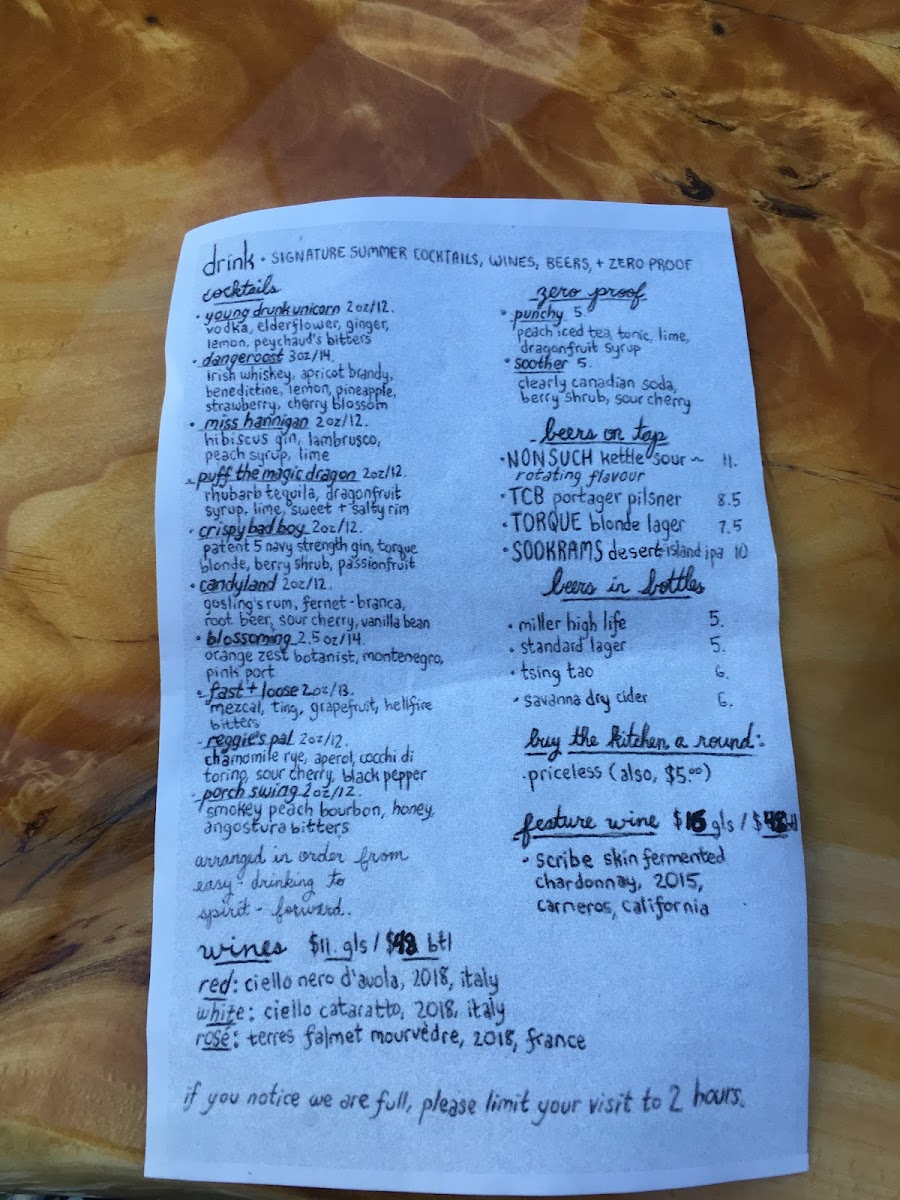 drink • SIGNATURE SUMMER COCKTAILS, WINES, BEERS, + ZERO PROOF
cocktails
• young drunk unicorn 2oz/12.
vodka, elderflower, ginger,
lemon, peychaud's bitters
• dangeroost 3oz/14.
irish whiskey, apricot brandy,
benedictine, lemon, pineapple,
strawberry, cherry blossom
• miss hannigan 2oz/12.
hibiscus gin, lambrusco,
peach syrup, lime
• puff the magic dragon 2oz/12.
rhubarb tequila, dragonfruit
syrup, lime, sweet + salty rim
• crispy bad boy 2oz/12.
patent 5 navy strength gin, torque
blonde, berry shrub, passionfruit
• candyland 2oz/12.
gosling's rum, fernet-branca,
root beer, sour cherry, vanilla bean
• blossoming 2.5oz/14.
orange zest botanist, montenegro,
pink port
• fast + loose 2oz/13.
mezcal, ting, grapefruit, hellfire
bitters
• reggie's pal 2oz/12.
chamomile rye, aperol, cocchi di
torino, sour cherry, black pepper
• porch swing 2oz/12.
smokey peach bourbon, honey,
angostura bitters
arranged in order from
easy-drinking to
spirit-forward.
wines $11. gls / $48 btl
red: ciello nero d'avola, 2018, italy
white: ciello cataratto, 2018, italy
rosé: terres falmet mourvèdre, 2018, france
zero proof
• punchy 5.
peach iced tea, tonic, lime,
dragonfruit syrup
• soother 5.
clearly canadian soda,
berry shrub, sour cherry
- beers on tap
• NONSUCH kettle sour ~ 11.
rotating flavour
• TCB portager pilsner 8.5
• TORQUE blonde lager 7.5
• SOOKRAMS desert island ipa 10
beers in bottles
• miller high life 5.
• standard lager 5.
• tsing tao 6.
• savanna dry cider 6.
buy the kitchen a round:
• priceless (also, $5.00)
feature wine $15 gls / $48 btl
• scribe skin fermented
chardonnay, 2015,
carneros, california
if you notice we are full, please limit your visit to 2 hours.